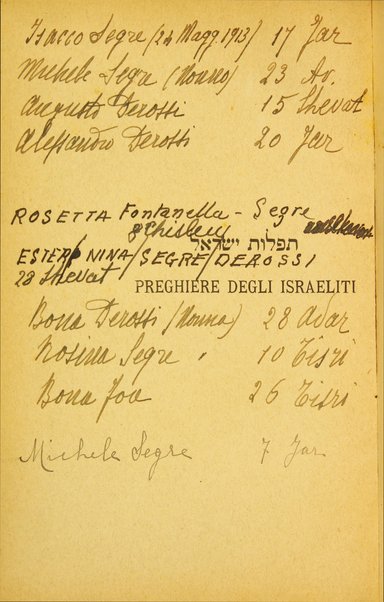 Isacco Segre (24 Magg. 1913) 17 Jar
Michele Segre (Nonno) 23 Av.
Augusto Derossi 15 Shevat
Alessandro Derossi 20 Jar
ROSETTA Fontanella - Segre
9 Chislew
תפלות ישראל
ESTER / NINA / SEGRE / DEROSSI
28 Shevat
PREGHIERE DEGLI ISRAELITI
Bona Derossi (Nonna) 28 Adar
Rosina Segre " 10 Tisri
Bona Foa 26 Tisri
Michele Segre 7 Jar